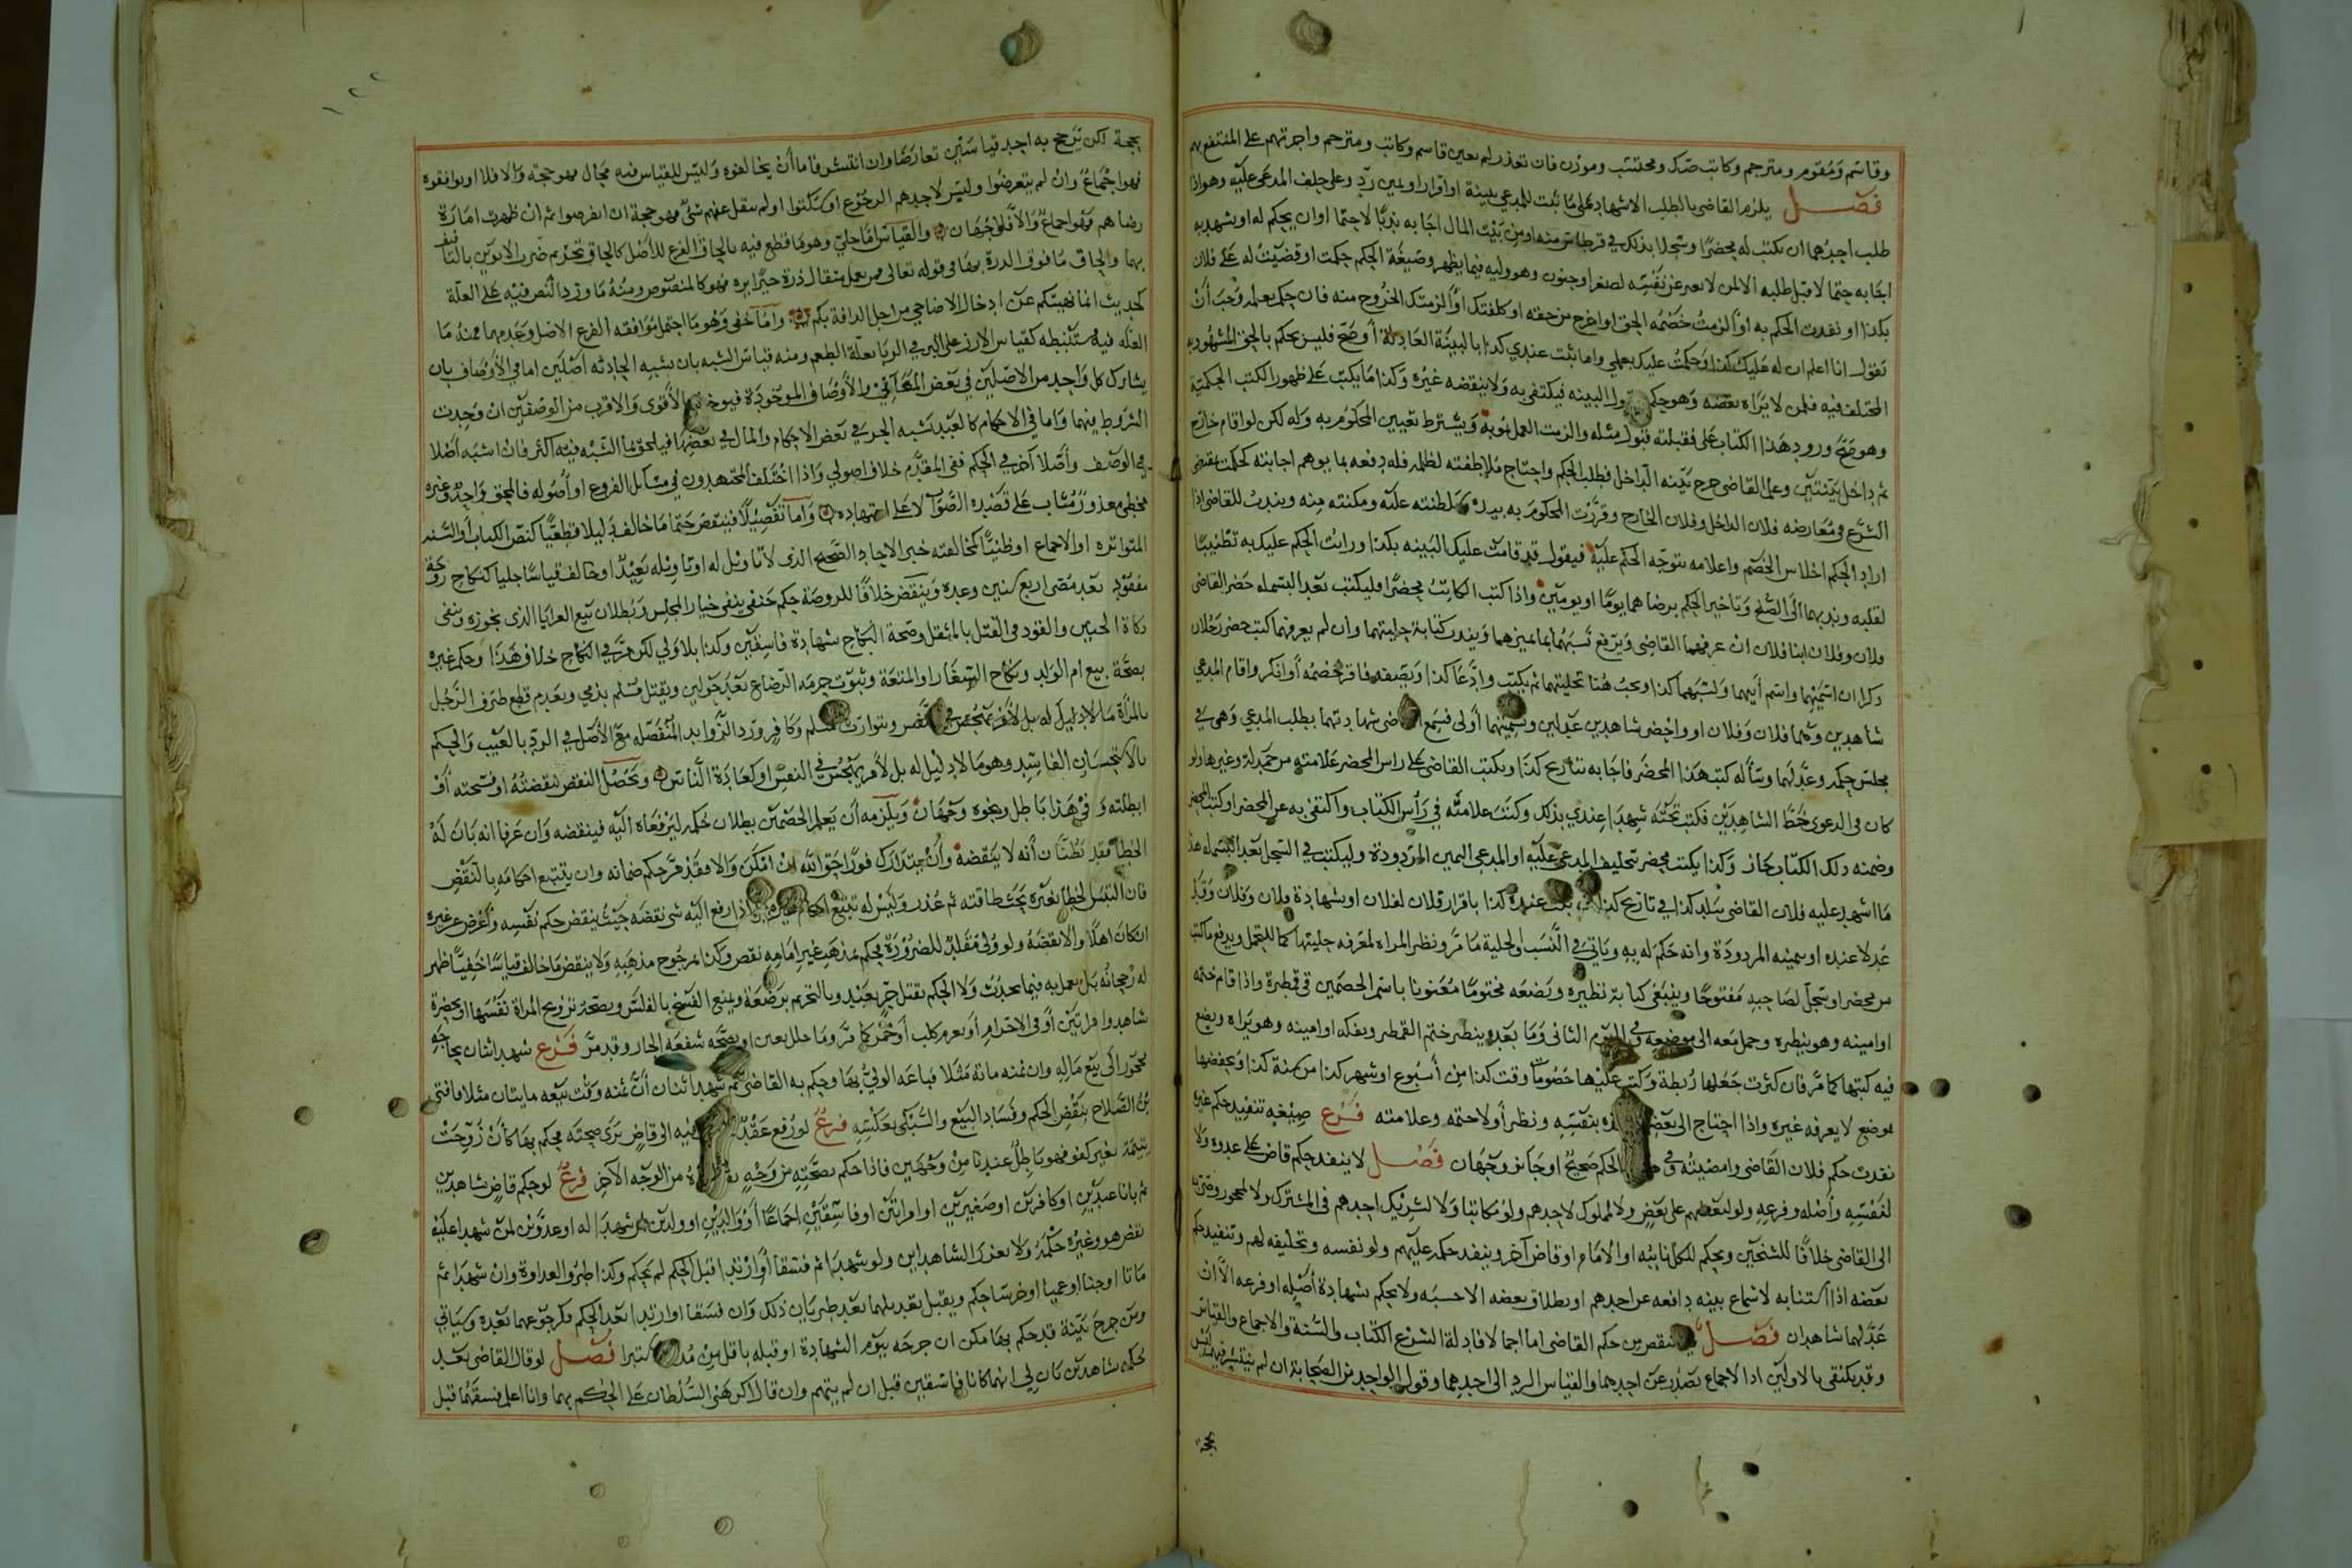 وقاسم ومقوم ومترجم وكاتب صك ومحتسب وموذن فان تعذر لم يعين قاسم وكاتب ومترجم واجرتهم على المنتفع بهم
فصل يلزم القاضي بالطلب الاشهاد على ما ثبت للمدعي ببينة او اقرار او يمين رد وعلى حلف المدعى عليه وهو اذا
طلب احدهما ان يكتب له محضرا وسجلا بذلك في قرطاس منه او من بيت المال اجابه ندبا لا حتما او ان يحكم له او يشهد به
اجابه حتما لا قبل طلبه الا لمن لا يعبر عن نفسه لصغر او جنون وهو وليه فيما يظهر وصيغة الحكم حكمت او قضيت له على فلان
بكذا او نفذت الحكم به او الزمت خصمه الحق او اخرج من حقه او كلفتك او الزمتك الخروج منه فان حكم بعلمه وجب ان
يقول انا اعلم ان له عليك كذا وحكمت عليك بعلمي واما ثبت عندي كذا بالبينة العادلة او صح فليس بحكم بالحق المشهور به
المختلف فيه فلمن لا يراه نقضه وهو حكم البينه فيكتفى به ولا ينقضه غيره وكذا ما يكتب على ظهور الكتب الحكمية
وهو صح ورود هذا الكتاب على فقبلته قبول مثله والزمت العمل بموجبه ويشترط تعيين المحكوم به وله لكن لو اقام خارج
ثم داخل بينتين وعلى القاضي جرح بينه الداخل فطلب الحكم واحتاج ملاطفته لظلمه فله دفعه بما يوهم اجابته كحكمت بمقتضى
الشرع في معارضه فلان الداخل وفلان الخارج وقررت المحكوم به بيده وسلطنته عليه ومكنته منه ويندب للقاضي اذا
اراد الحكم اجلاس الخصم واعلامه بتوجه الحكم عليه فيقول قد قامت عليك البينه بكذا ورايت الحكم عليك به تطييبا
لقلبه ويندبهما الى الصلح وتاخير الحكم برضاهما يوما او يومين واذا كتب الكاتب محضرا فليكتب بعد البسمله حضر القاضي
فلان وفلان ابنا فلان ان عرفهما القاضي ويرفع نسبهما بما يميزهما ويندب كتابة حليتهما وان لم يعرفهما كتب حضر رجلان
ذكرا ان اسميهما واسم ابيهما ونسبهما كذا ويجب هنا تحليتهما ثم يكتب وادعا كذا ويصفه فاقر خصمه او انكر واقام المدعي
شاهدين وهما فلان وفلان او واحضر شاهدين عدلين وتسميتهما اولى فسمع القاضي شهادتهما بطلب المدعي وهو في
مجلس حكمه وعدلهما وسأله كتب هذا المحضر فاجابه بتاريخ كذا ويكتب القاضي على راس المحضر علامته من حمدلة وغيرها ولو
كان في الدعوى خط الشاهدين فكتب تحته شهدا عندي بذلك وكتب علامته في رأس الكتاب واكتفى به عن المحضر او كتب المحضر
وضمنه ذلك الكتاب جاز وكذا يكتب محضر تحليف المدعى عليه او المدعي اليمين المردودة وليكتب في السجل بعد البسمله هذا
ما اشهد عليه فلان القاضي ببلد كذا في تاريخ كذا ثبت عنده كذا باقرار فلان لفلان او بشهادة فلان وفلان وقد
عدلا عنده او بيمينه المردودة وانه حكم له به وياتي في النسب والحلية ما مر ونظر المراه لمعرفه حليتها كما للتحمل ويدفع ما كتب
من محضر او سجل لصاحبه مفتوحا وينبغي كتابة نظيره ويضعه مختوما معنونا باسم الخصمين في قمطرة واذا قام ختمه
او امينه وهو ينظره وحمل معه الى موضعه وفي اليوم الثاني وما بعده ينظر ختم القمطر ويفكه او امينه وهو يراه ويضع
فيه كتبها كما مر فان كثرت جعلها ربطة وكتب عليها خصومات وقت كذا من اسبوع او شهر كذا من سنة كذا ويحفظها
موضع لا يعرفه غيره واذا احتاج الى بعضها اخذه بنفسه ونظر أولا ختمه وعلامته فرع صيغه تنفيذ حكم غيره
نفذت حكم فلان القاضي وامضيته وفي الحكم صحيح او جائز وجهان فصل لا ينفذ حكم قاض على عدوه ولا
لنفسه وأصله وفرعه ولو لبعضهم على بعض ولا لمملوك لاحدهم ولو مكاتبا ولا لشريك احدهم في المشترك ولا لمحجور وصى به
الى القاضي خلافا للشيخين ويحكم للكل نائبه او الامام او قاض آخر وينفذ حكمه عليهم ولو نفسه وتحليفه لهم وتنفيذ حكم
بعضه اذا استنابه لا سماع بينه دافعه عن احدهم او بطلاق بعضه الا حسبه ولا يحكم بشهادة أصله او فرعه الا ان
عدلهما شاهدان فصل في نقض من حكم القاضي اما اجمالا فادلة الشرع الكتاب والسنة والاجماع والقياس
وقد يكتفى بالاولين اذ الاجماع يصدر عن احدهما والقياس الرد الى احدهما وقول الواحد من الصحابة ان لم ينتشر فيهم ليس
بحجة
بحجة لكن ترجح به احد قياسين تعارضا وان انتشر فاما أن يخالفوه وليس للقياس فيه مجال فهو حجة والا فلا او يوافقوه
فهو اجماع وان لم يتعرضوا وليس لاحدهم الرجوع او سكتوا او لم ينقل عنهم شئ فهو حجة ان انقرضوا ثم ان ظهرت امارة
رضاهم فهو اجماع والا فوجهان والقياس اما جلي وهو ما قطع فيه بالحاق الفرع للأصل كالحاق تحريم ضرب الابوين بالتأفيف
بهما والحاق ما فوق الذرة بها في قوله تعالى فمن يعمل مثقال ذرة خيرا يره فهو كالمنصوص ومنه ما ورد النص فيه على العلة
كحديث انما نهيتكم عن ادخال الاضاحي من اجل الدافة بكم واما خفي وهو ما احتمل موافقه الفرع الاصل وعدمها فمنه ما
العله فيه مستنبطه كقياس الارز على البر في الربا بعلة الطعم ومنه قياس الشبه بان تشبه الحادثه اصلين اما في الأوصاف بان
يشارك كل واحد من الاصلين في بعض المعاني والأوصاف الموجودة فيوخذ الأقوى والاقرب من الوصفين ان وجدت
الشروط فيهما واما في الاحكام كالعبد تشبه الحر في بعض الاحكام والمال في بعضها فيلحق بما الشبه فيه اكثر فان اشبه اصلا
في الوصف وأصلا آخر في الحكم ففي المقدم خلاف اصولي واذا اختلف المجتهدون في مسائل الفروع او أصوله فالمحق واحد وغيره
مخطئ معذور مثاب على قصده الصواب لا على اجتهاده وأما تفصيلا فينقض حتما ما خالف دليلا قطعيا كنص الكتاب أو السنة
المتواتره او الاجماع او ظنيا كمخالفته خبر الاحاد الصحيح الذي لا تاويل له او تاويله بعيد او خالف قياسا جليا كنكاح زوجة
مفقود بعد مضي اربع سنين وعده وينقض خلافا للروضة حكم حنفي بنفي خيار المجلس وبطلان بيع العرايا الذي نجوزه ونفى
ذكاة الجنين والقود في القتل بالمثقل وصحة النكاح بشهادة فاسقين وكذا بلا ولي لكن مر في النكاح خلاف هذا وحكم غيره
بصحة بيع ام الولد ونكاح الشغار او المتعة وثبوت حرمه الرضاع بعد حولين وبقتل مسلم بذمي وبعدم قطع طرف الرجل
بالمرأة وبتوارث مسلم وكافر ورد الزوايد المنفصله مع الأصل في الرد بالعيب والحكم
بالاستحسان الفاسد وهو ما لا دليل له بل لأمر يهجس في النفس او كعادة الناس ويحصل النقض بنقضته او فسخته أو
ابطلته وفي هذا باطل ونحوه وجهان ويلزمه أن يعلم الخصمين بطلان حكمه ليترافعا اليه فينقضه وان عرفا انه بان له
الخطأ فقد يظنان أنه لا ينقضه وأن يتدارك فورا حق الله ان امكن والا فقد مر حكم ضمانه وان يتتبع احكامه بالنقض
فان التبس الخطأ بغيره بحث طاقته ثم عذر وليس له تتبع احكام غيره بل اذا رفع اليه شي نقضه حيث ينقض حكم نفسه وأعرض عن غيره
ان كان اهلا والا نقضه ولو ولي مقلد للضرورة فحكم بمذهب غير امامه نقض وكذا بمرجوح مذهبه ولا ينقض ما خالف قياسا خفيا ظهر
له رجحانه بل يعمل به فيما يحدث ولا الحكم بقتل حر بعبد وبالتحريم برضعة وبمنع الفسخ بالفلس وبصحة تزويج المراة نفسها او بحضرة
شاهد وامراتين أو في الاحرام أو بغرم كلب أو خمر كما مر وما حلل بعين او بصحه شفعه الجار وقد مر فرع شهد اثنان بحاجة
محجور الى بيع ماله وان ثمنه مائة مثلا فباعه الولي بها وحكم به القاضي ثم شهد اثنان أن ثمنه وقت بيعه مايتان مثلا فافتى
بن الصلاح بنقض الحكم وفساد البيع والسبكي بعكسه فرع لو رفع عقد اليه او قاض يرى صحته فحكم بها كأن زوجت
يتيمة بغير كفو فهو باطل عندنا من وجهين فاذا حكم بصحته من وجه من الوجه الآخر فرع لو حكم قاض بشاهدين
ثم بانا عبدين او كافرين او صغيرين او امراتين او فاسقين اجماعا أو والدين او ولدين لمن شهدا له او عدوين لمن شهدا عليه
نقض هو وغيره حكمه ولا يعزر الشاهدين ولو شهدا ثم فسقا أو ارتدا قبل الحكم لم يحكم وكذا طرو العداوة وان شهدا ثم
ماتا او جنا او عميا او خرسا حكم ويقبل تعديلهما بعد طريان ذلك وان فسقا او ارتدا بعد الحكم فكرجوعهما بعده وسياتي
ومن جرح بينة قد حكم بها مكن ان جرحه بيوم الشهادة او قبله باقل من مدة كتبرا فصل لو قال القاضي بعد
حكمه بشاهدين بان لي انهما كانا فاسقين قبل ان لم يتهم وان قال اكرهني السلطان على الحكم بهما وانا اعلم فسقهما قبل